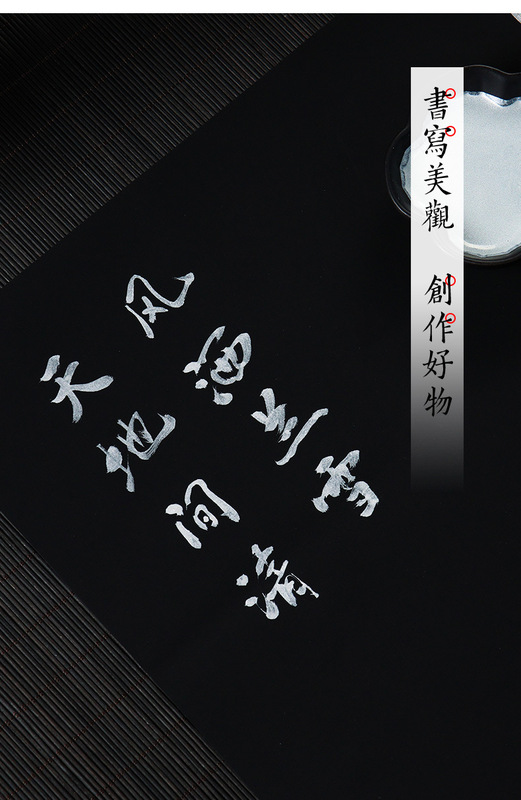 書寫美觀 創作好物
天地间清
风洒兰雪